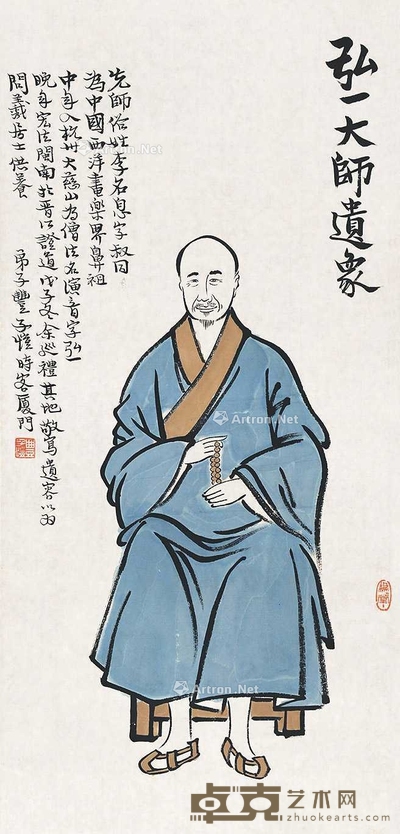 弘一大師遺象
先師俗姓李名息字叔同
為中國西洋畫樂界鼻祖
中年入杭州大慈山為僧法名演音字弘一
晚年宏法閩南於晉江證道戊子冬余巡禮其地敬寫遺容以為
問羲居士供養
弟子豐子愷時客廈門
Artron.Net
Artron.Net
Artron.Net
Artron.Net
卓克艺术网
zhuokearts.com